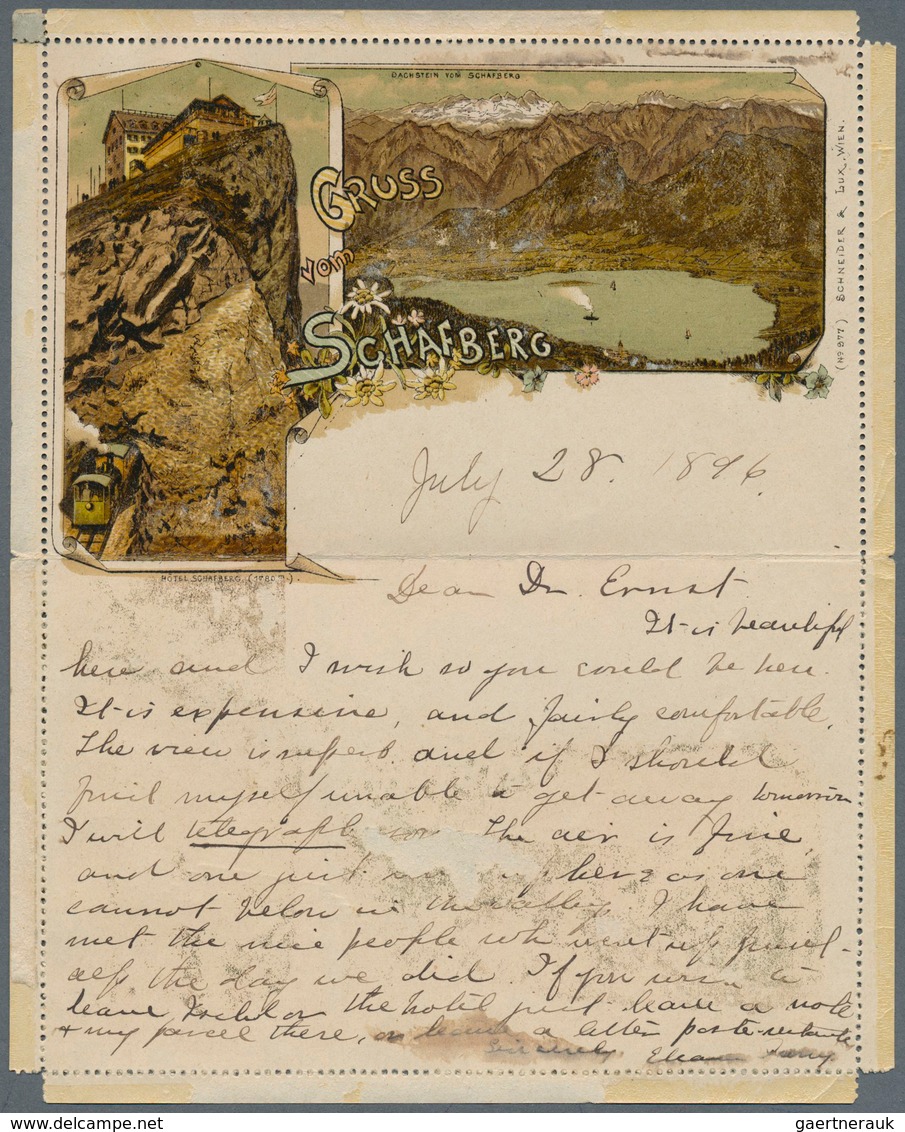 DACHSTEIN VOM SCHAFBERG
GRUSS
vom
SCHAFBERG
(No 877) SCHNEIDER & LUX, WIEN.
HÔTEL SCHAFBERG. (1780 m.)
July 28. 1896.
Dear Dr. Ernst.
It is beautiful
here and I wish so you could be here.
It is expensive, and fairly comfortable.
The view is superb and if I should
find myself unable to get away tomorrow
I will telegraph you The air is fine,
and one just here as one
cannot below in the valley. I have
met the nice people who went up
the day we did. If you
leave Ischl or the hotel just leave a note
& my parcel there, or leave a letter poste-restante
Sincerely
gaertnerauk